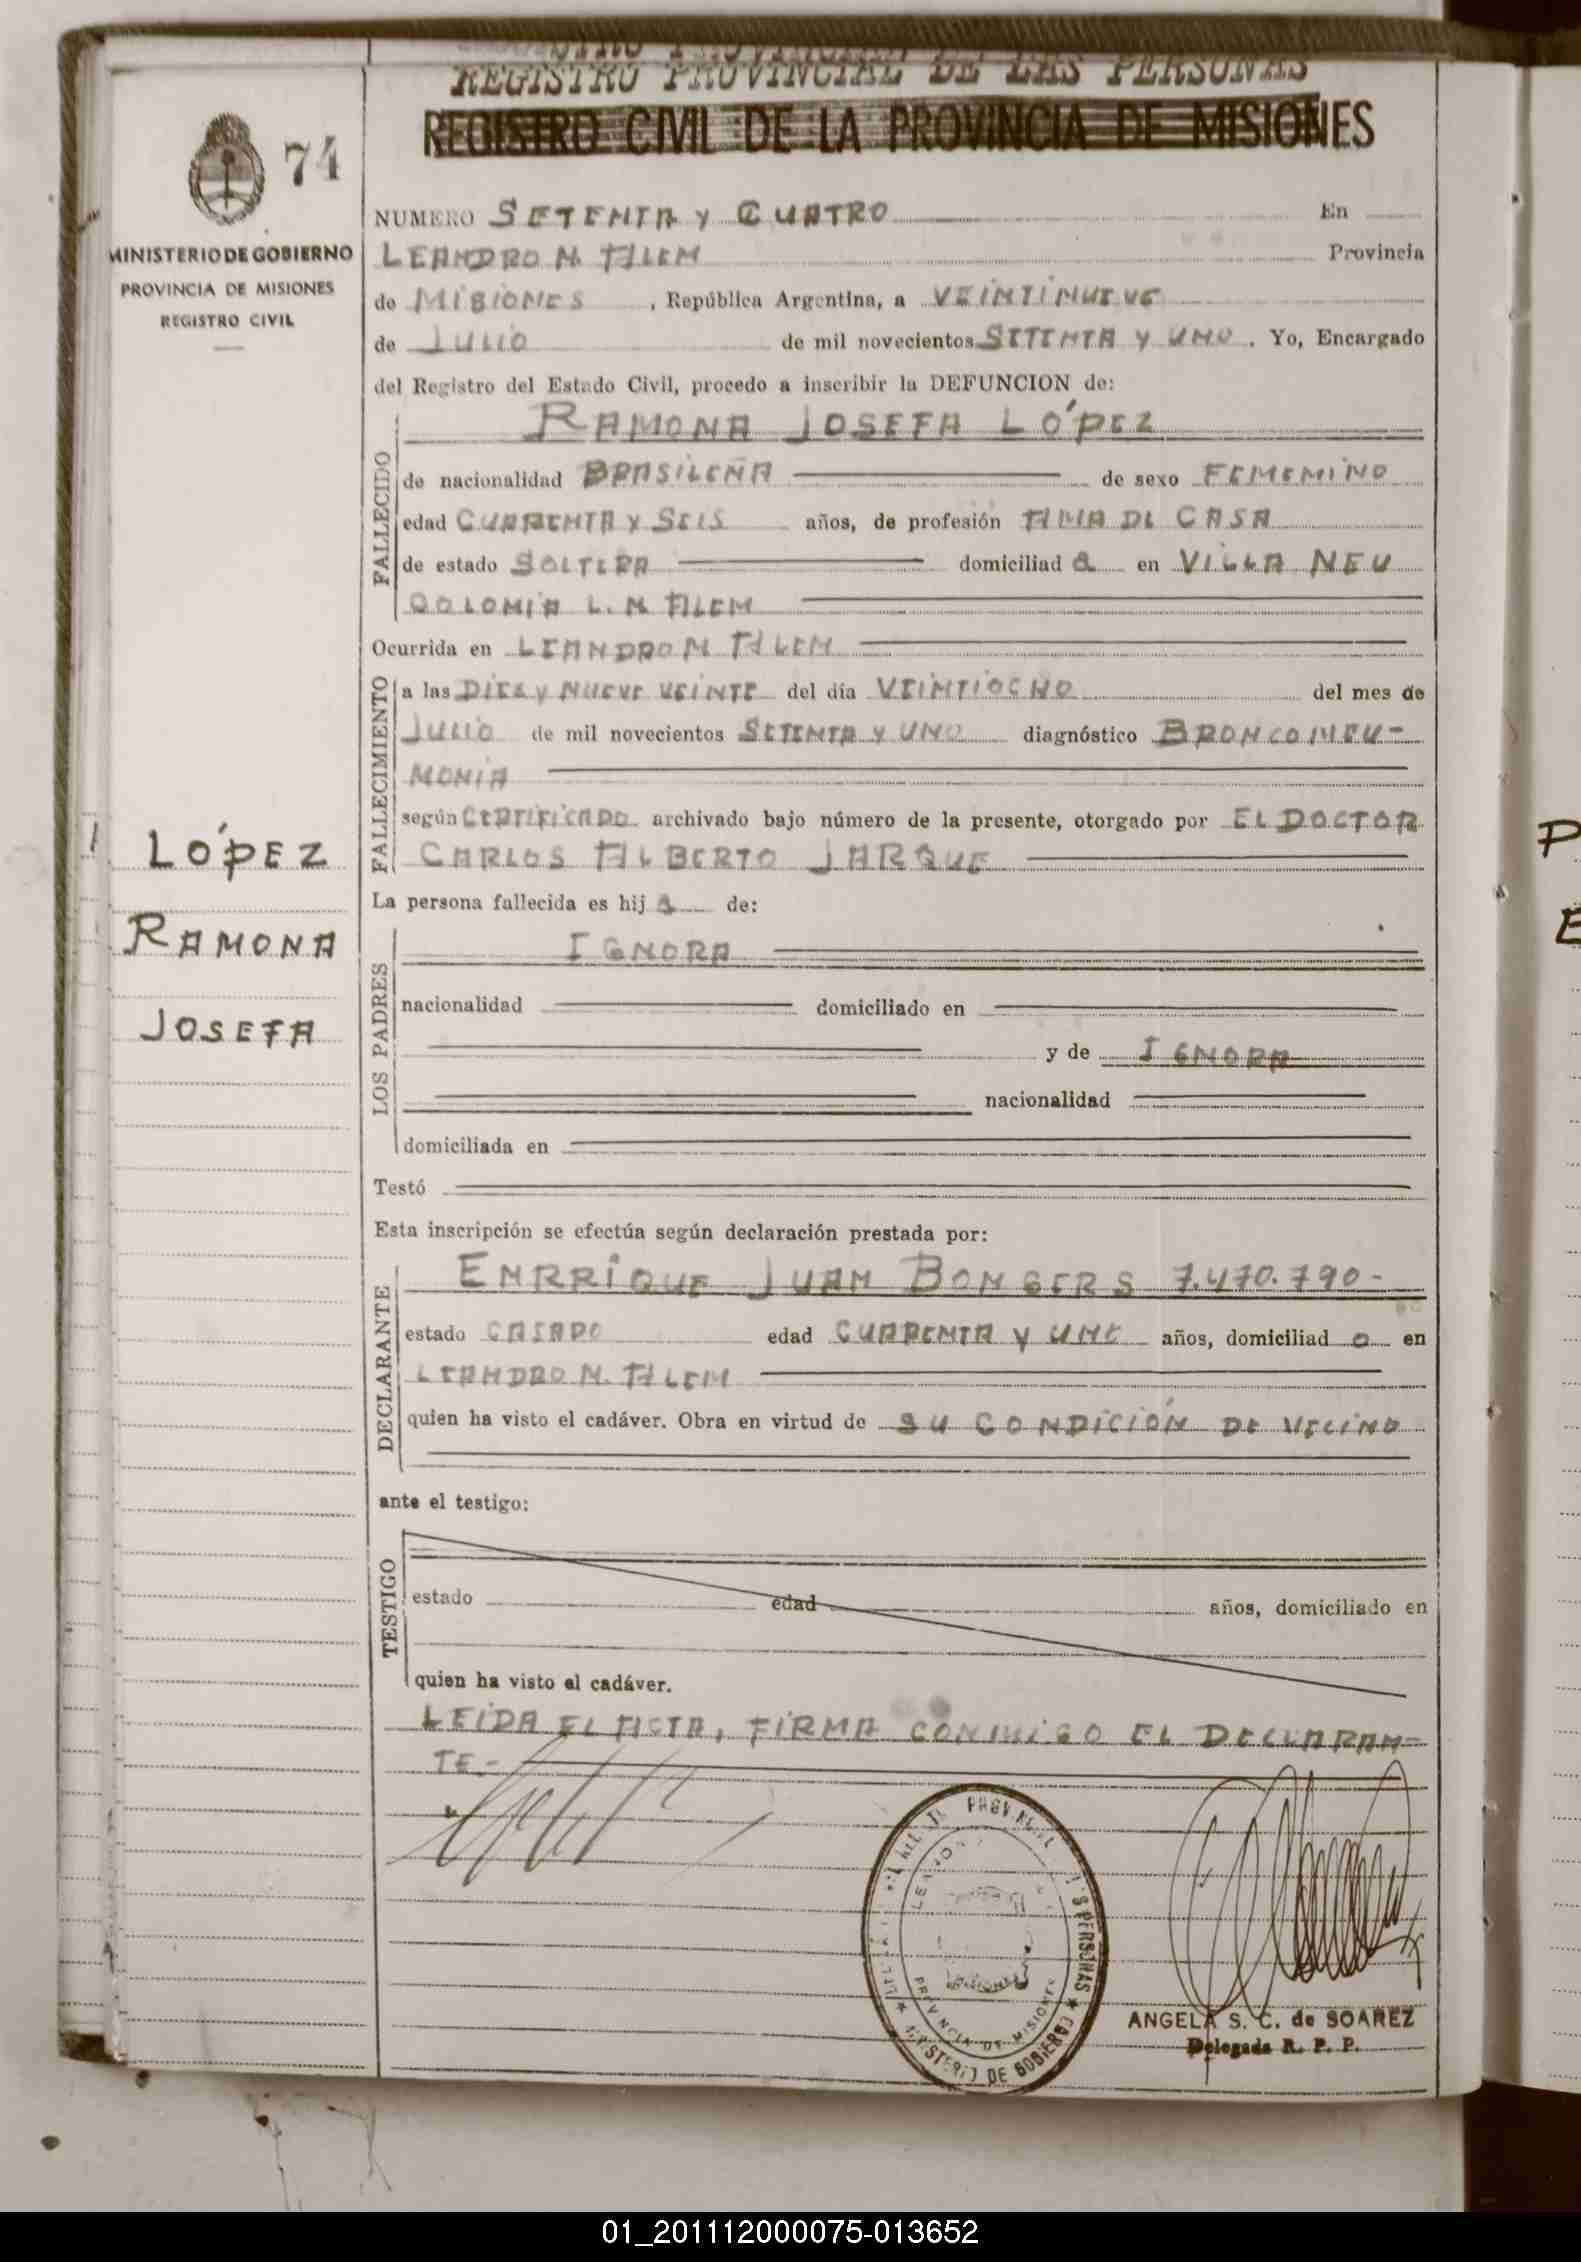 REGISTRO PROVINCIAL DE LAS PERSONAS
REGISTRO CIVIL DE LA PROVINCIA DE MISIONES
74
MINISTERIO DE GOBIERNO
PROVINCIA DE MISIONES
REGISTRO CIVIL
NUMERO SETENTA Y CUATRO En
LEANDRO N. ALEM Provincia
de MISIONES, República Argentina, a VEINTINUEVE
de JULIO de mil novecientos SETENTA Y UNO. Yo, Encargado
del Registro del Estado Civil, procedo a inscribir la DEFUNCION de:
FALLECIDO
RAMONA JOSEFA LÓPEZ
de nacionalidad BRASILEÑA de sexo FEMENINO
edad CUARENTA Y SEIS años, de profesión AMA DE CASA
de estado SOLTERA domiciliad a en VILLA NEU
COLONIA L. N. ALEM
Ocurrida en LEANDRO N ALEM
FALLECIMIENTO
a las DIEZ Y NUEVE VEINTE del día VEINTIOCHO del mes de
JULIO de mil novecientos SETENTA Y UNO diagnóstico BRONCONEU-
MONIA
según CERTIFICADO archivado bajo número de la presente, otorgado por EL DOCTOR
CARLOS ALBERTO JARQUE
LÓPEZ
RAMONA
JOSEFA
La persona fallecida es hij a de:
LOS PADRES
IGNORA
nacionalidad domiciliado en
y de IGNORA
nacionalidad
domiciliada en
Testó
Esta inscripción se efectúa según declaración prestada por:
DECLARANTE
ENRRIQUE JUAN BONGERS 7.470.790-
estado CASADO edad CUARENTA Y UNO años, domiciliad o en
LEANDRO N. ALEM
quien ha visto el cadáver. Obra en virtud de SU CONDICIÓN DE VECINO
ante el testigo:
TESTIGO
estado edad años, domiciliado en
quien ha visto el cadáver.
LEIDA EL ACTA, FIRMA CONMIGO EL DECLARAN-
TE.-
PERSONAS
PROVINCIA DE MISIONES
MINISTERIO DE GOBIERNO
ANGELA S. C. de SOAREZ
Delegada R. P. P.
01_201112000075-013652